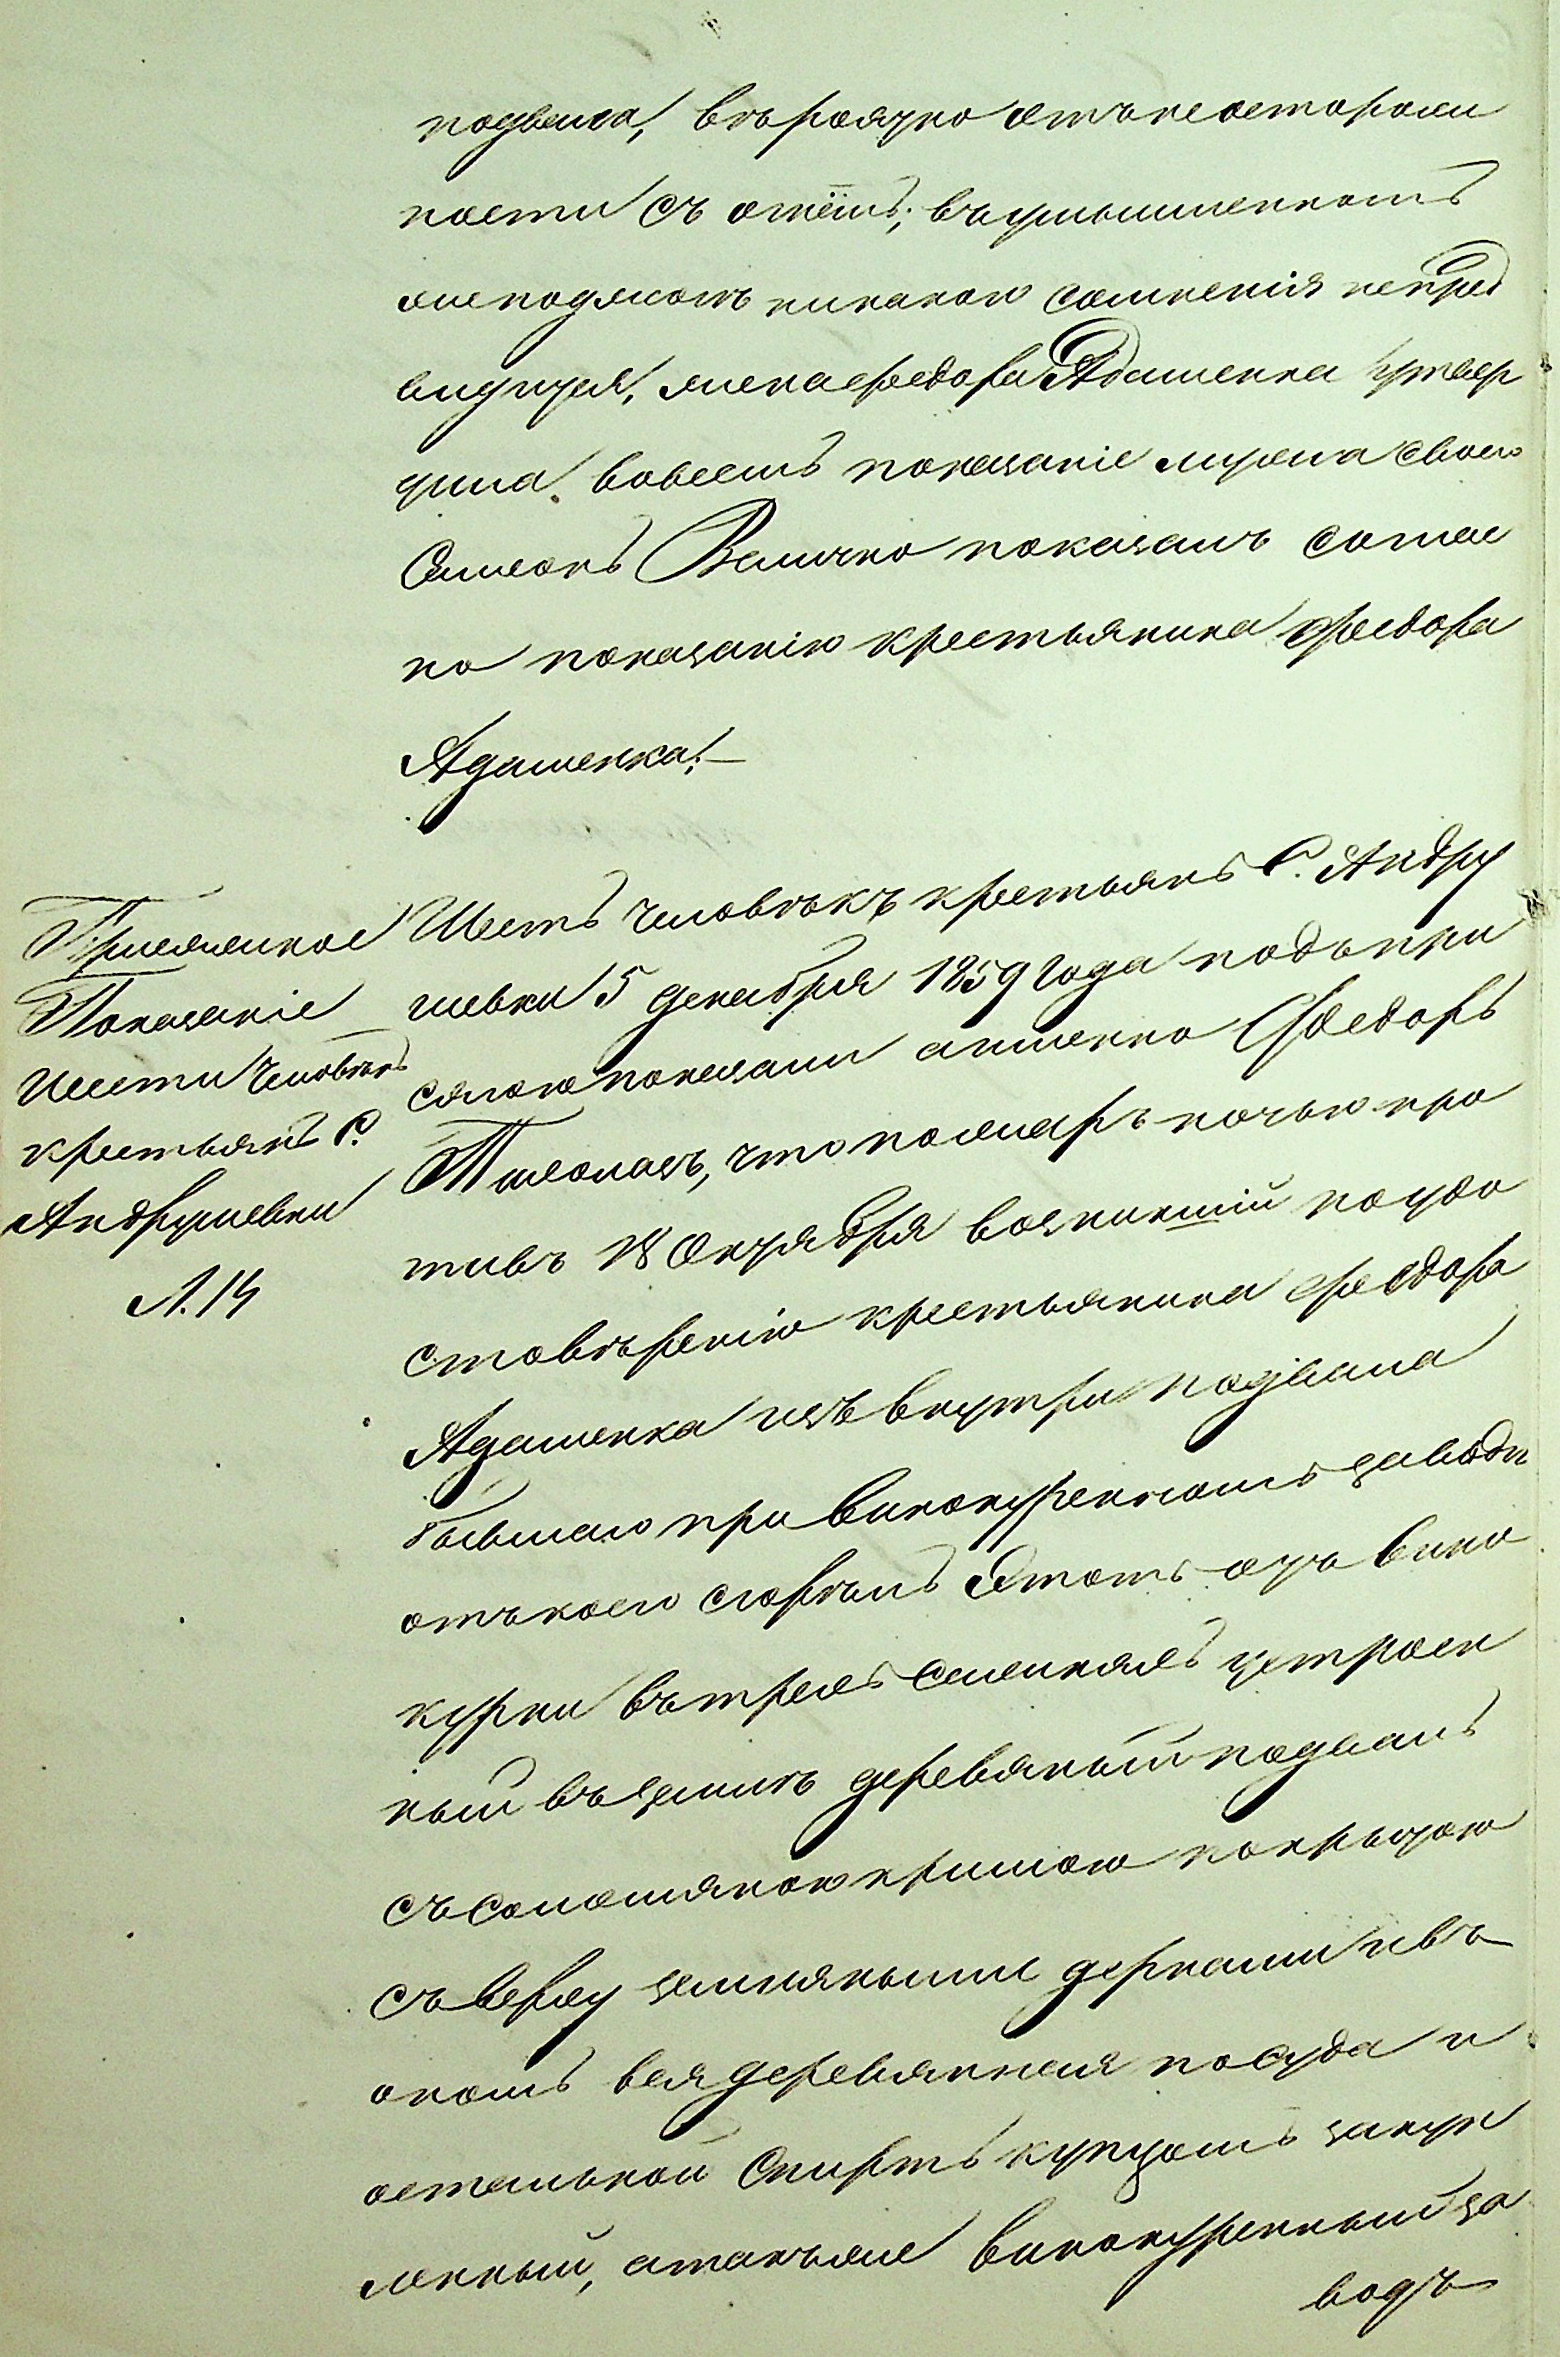 подвала, вѣроятно отъ неосторож
ности съ огнёмъ; въ умышленномъ
же поджогѣ никакого сомнѣнія непред
видится, жена Федора Адаменка утвер
дила во всемъ показаніе мужа своего
Симеонъ Величко показалъ соглас
но показанію крестьянина Федора
Адаменка;—
Присяжное
Показаніе
шести человѣкъ
крестьянъ С.
Андрушевки
Л. 14
Шесть человѣкъ крестьянъ С. Андру
шевки 5 декабря 1859 года подъ при
сягою показали а именно Федоръ
что пожаръ ночью про
тивъ 18 Октября возникшій по удо
стовѣренію крестьянина Федора
Адаменка изъ внутри подвала
бывшаго при винокуренномъ заводѣ
отъ коего сгорѣлъ этотъ отъ вино
курни въ трехъ саженяхъ устроен
ный въ землѣ деревяный подвалъ
съ соломяною кришою покрытою
съ верху земляными дернами и въ
ономъ вся деревянная посуда и
остальной Спиртъ купцомъ закуп
ленный, а также винокуренный за
водъ